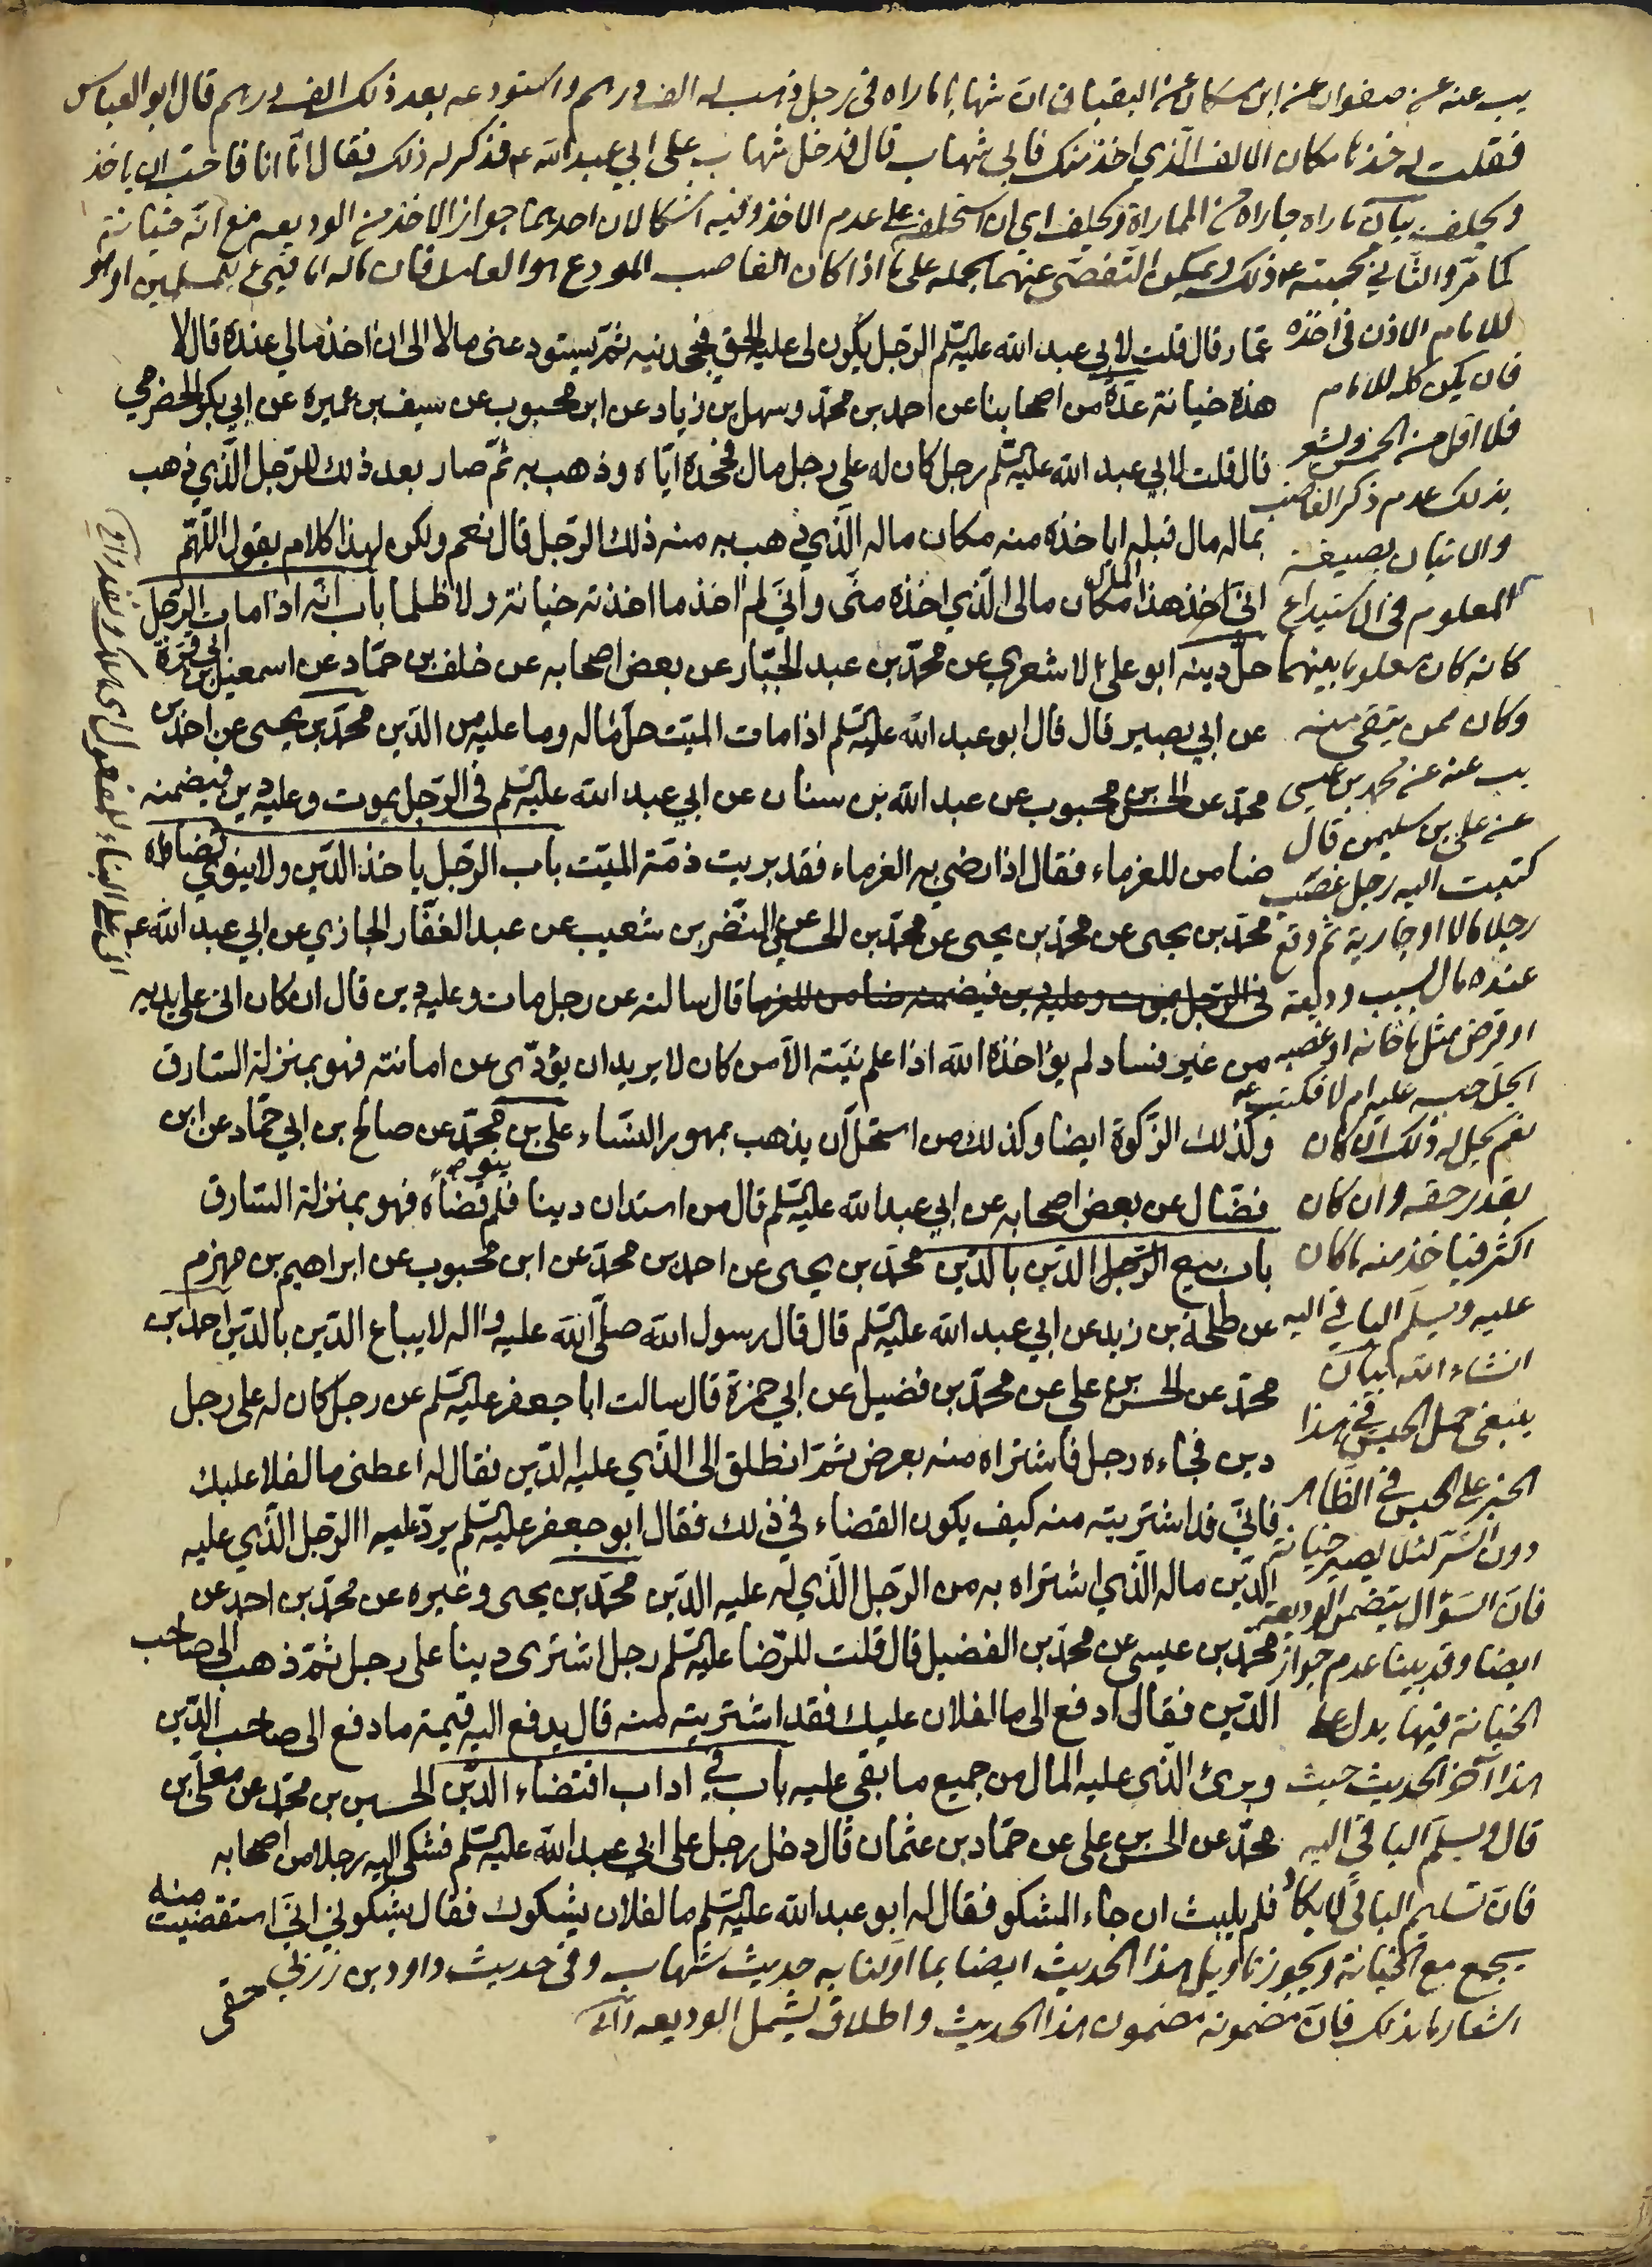 يب عنه عن صفوان عن ابن مسكان عن البقباق ان شهابا ماراه في رجل ذهب له الف درهم واستودعه بعد ذلك الف درهم قال ابو العباس
فقلت له خذها مكان الالف الذي اخذ منك فابى شهاب قال فدخل شهاب على ابي عبد الله ع فذكر له ذلك فقال اما انا فاحب ان ياخذ
ويحلف بيان ماراه جاراه من المماراة ويحلف اي ان استحلفه على عدم الاخذ وفيه اشكالان احدهما جواز الاخذ من الوديعه مع انه خيانة
كما مر والثاني محبته ع ذلك ويمكن التفصي عنهما بحمله على ما اذا كان الغاصب المودع هو العامل فان ماله اما فيئ للمسلمين او هو
للامام الاذن في اخذه
فان يكن كله للامام
فلا اقل من الخمس ويشعر
بذلك عدم ذكر الغاصب
والاتيان بصيغة
المعلوم في الاستيداع
كانه كان معلوما بينهما
وكان ممن يتقى منه
يب عنه عن محمد بن عيسى
عن علي بن سليمن قال
كتبت اليه رجل غصب
رجلا مالا او جارية ثم وقع
عنده مال بسبب وديعة
او قرض مثل ما خانه او غصبه
ايحل حبسه عليه ام لا فكتب ع
نعم يحل له ذلك ان كان
بقدر حقه وان كان
اكثر فياخذ منه ما كان
عليه ويسلم الباقي اليه
انشاء الله بيان
ينبغي حمل الحبس في هذا
الخبر على الحبس في الظاهر
دون السر لئلا يصير خيانة
فان السؤال يتضمن الوديعة
ايضا وقد بينا عدم جواز
الخيانة فيها يدل على
هذا آخر الحديث حيث
قال ويسلم الباقي اليه
فان تسليم الباقي لا يكاد
يجمع مع الخيانة ويجوز تاويل هذا الحديث ايضا بما اولنا به حديث شهاب وفى حديث داود بن زربي
اشعار ما بذلك فان مضمونه مضمون هذا الحديث واطلاقه يشمل الوديعه
عمار قال قلت لابي عبد الله عليه السلم الرجل يكون لي عليه الحق فيجحدنيه ثم يستودعني مالا الى ان اخذ مالي عنده قال لا
هذه خيانة عدة من اصحابنا عن احمد بن محمد وسهل بن زياد عن ابن محبوب عن سيف بن عميرة عن ابي بكر الحضرمي
قال قلت لابي عبد الله عليه السلم رجل كان له على رجل مال فجحده اياه وذهب به ثم صار بعد ذلك للرجل الذي ذهب
بماله مال قبله اياخذه منه مكان ماله الذي ذهب به منه ذلك الرجل قال نعم ولكن لهذا كلام يقول اللهم
اني اخذ هذا المال مكان مالي الذي اخذه مني واني لم اخذ ما اخذته خيانة ولا ظلما باب انه اذا مات الرجل
حل دينه ابو علي الاشعري عن محمد بن عبد الجبار عن بعض اصحابه عن خلف بن حماد عن اسمعيل بن ابي قرة
عن ابي بصير قال قال ابو عبد الله عليه السلم اذا مات الميت حل ماله وما عليه من الدين محمد بن يحيى عن احمد بن
محمد عن الحسن بن محبوب عن عبد الله بن سنان عن ابي عبد الله عليه السلم في الرجل يموت وعليه دين فيضمنه
ضامن للغرماء فقال اذا رضي به الغرماء فقد بريت ذمة الميت باب الرجل ياخذ الدين ولا ينوي قضاءه
محمد بن يحيى عن محمد بن يحيى عن محمد بن الحسين عن النضر بن شعيب عن عبد الغفار الجازي عن ابي عبد الله ع
في الرجل يموت وعليه دين فيضمنه ضامن للغرما قال سالته عن رجل مات وعليه دين قال ان كان اتى على يديه
من غير فساد لم يؤاخذه الله اذا علم نيته الا من كان لا يريد ان يؤدى عن امانته فهو بمنزلة السارق
وكذلك الزكوة ايضا وكذلك من استحل ان يذهب بمهور النساء علي بن محمد عن صالح بن ابي حماد عن ابن
فضال عن بعض اصحابه عن ابي عبد الله عليه السلم قال من استدان دينا فلم ينو قضاه فهو بمنزلة السارق
باب بيع الدين بالدين محمد بن يحيى عن احمد بن محمد عن ابن محبوب عن ابراهيم بن مهزم
عن طلحة بن زيد عن ابي عبد الله عليه السلم قال قال رسول الله صلى الله عليه واله لا يباع الدين بالدين احمد بن
محمد عن الحسن بن علي عن محمد بن فضيل عن ابي حمزة قال سالت ابا جعفر عليه السلم عن رجل كان له على رجل
دين فجاءه رجل فاشتراه منه بعرض ثم انطلق الى الذي عليه الدين فقال له اعطني ما لفلان عليك
فاني قد اشتريته منه كيف يكون القضاء في ذلك فقال ابو جعفر عليه السلم يرد عليه الرجل الذي عليه
الدين ماله الذي اشتراه به من الرجل الذي له عليه الدين محمد بن يحيى وغيره عن محمد بن احمد عن
محمد بن عيسى عن محمد بن الفضيل قال قلت للرضا عليه السلم رجل اشترى دينا على رجل ثم ذهب الى صاحب
الدين فقال ادفع الى ما لفلان عليك فقد اشتريته منه قال يدفع اليه قيمة ما دفع الى صاحب الدين
وبرئ الذي عليه المال من جميع ما بقي عليه باب في اداب اقتضاء الدين الحسين بن محمد عن معلى بن
محمد عن الحسن بن علي عن حماد بن عثمان قال دخل رجل على ابي عبد الله عليه السلم فشكى اليه رجلا من اصحابه
فلم يلبث ان جاء المشكو فقال له ابو عبد الله عليه السلم ما لفلان يشكوك فقال يشكوني اني استقضيت منه
حقى